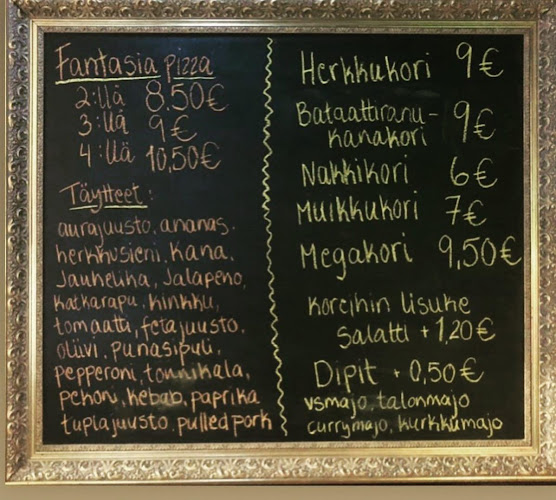 Fantasia pizza
2:llä 8.50€
3:llä 9€
4:llä 10,50€
Täytteet:
aurajuusto, ananas.
herkkusieni, kana,
Jauheliha, Jalapeno,
katkarapu, kinkku,
tomaatti, fetajuusto,
oliivi, punasipuli,
pepperoni, tonnikala,
pekoni, kebab, paprika
tuplajuusto, pulled pork
Herkkukori 9€
Bataattiranu-
kanakori 9€
Nakkikori 6€
Muikkukori 7€
Megakori 9,50€
Koreihin lisuke
Salatti + 1,20€
Dipit + 0,50€
vsmajo, talonmajo
currymajo, kurkkumajo